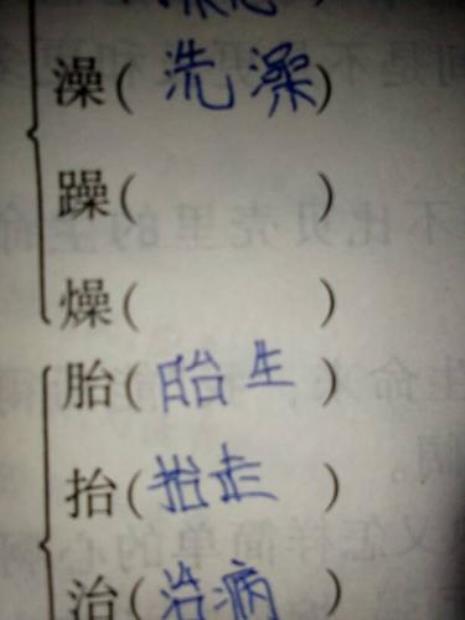 澡(洗澡)
躁( )
燥( )
胎(胎生)
抬(抬走)
治(治病)